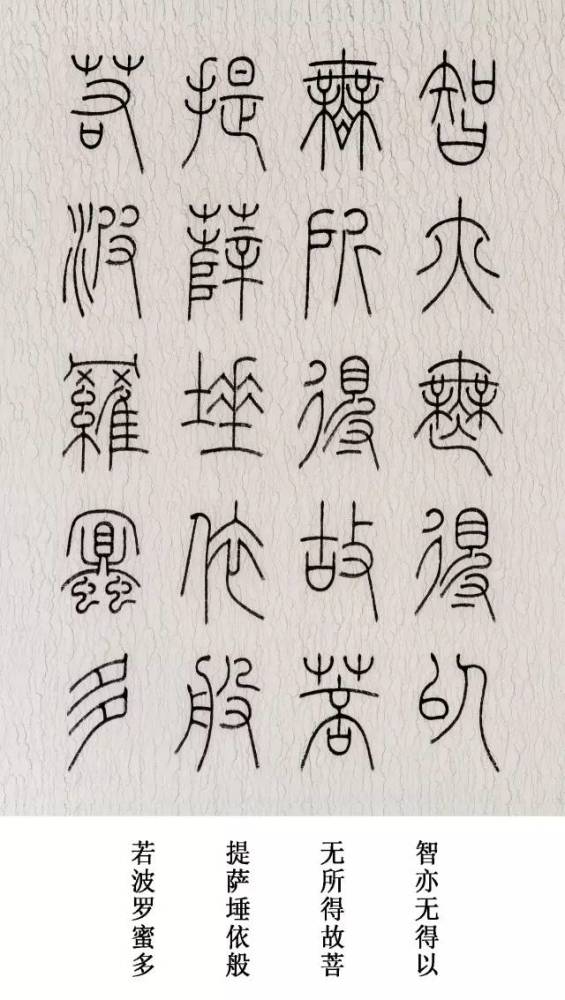 智亦無得以
無所得故菩
提薩埵依般
若波羅蜜多
智亦无得以
无所得故菩
提萨埵依般
若波罗蜜多